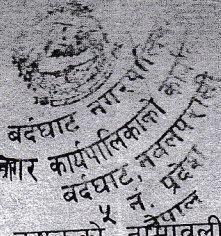 बर्दघाट नगरपालिका
नगर कार्यपालिकाको कार्यालय
बर्दघाट, नवलपरासी
५ नं. प्रदेश
नेपाल
नामावली